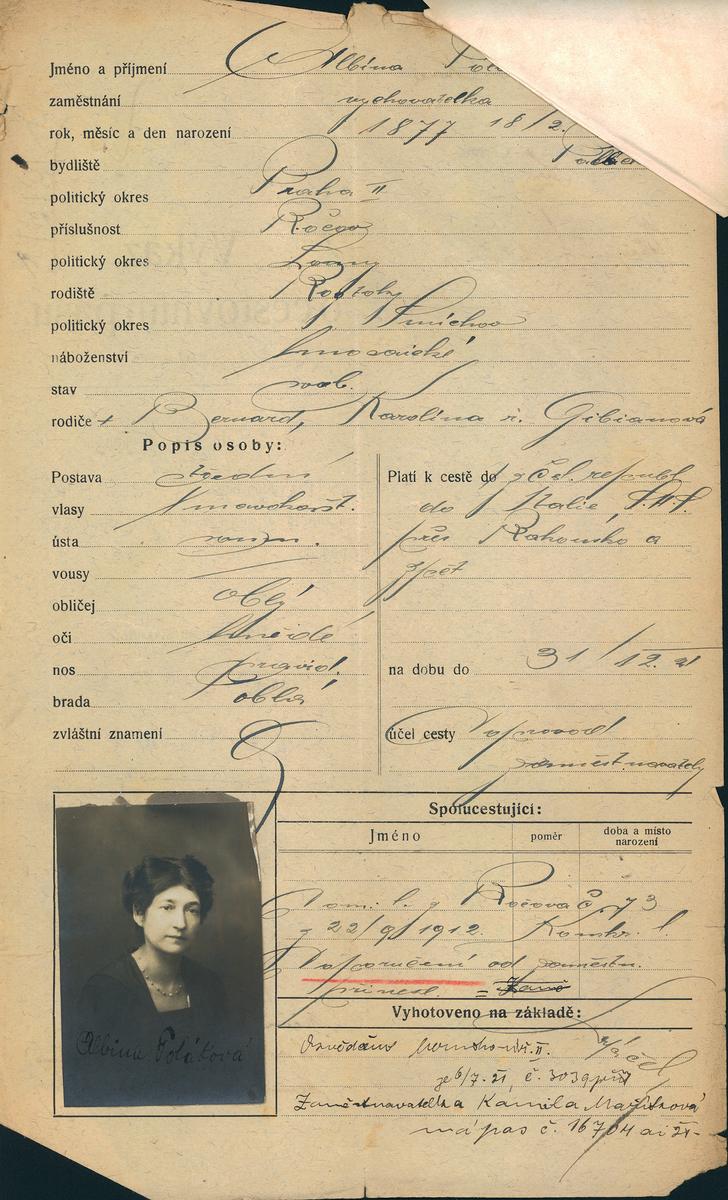 Jméno a příjmení Albína
zaměstnání vychovatelka
rok, měsíc a den narození 1877 18/2.
bydliště
politický okres Praha II
příslušnost Ročov
politický okres Louny
rodiště Roztoky
politický okres Smíchov
náboženství mosaické
stav svob.
rodiče + Bernard, Karolina r. Gibianová
Popis osoby:
Postava střední
vlasy tmavokašt.
ústa soum.
vousy
obličej oblý
oči hnědé
nos pravid.
brada oblá
zvláštní znamení
Platí k cestě do z Čsl. republ.
do Italie, S.H.S.
přes Rakousko a
zpět
na dobu do 31/12. 21
účel cesty doprovod
zaměstnavatelky
Spolucestující:
Jméno poměr doba a místo narození
Dom. l. z Ročova č. 73
z 22/9/1912. Konkr. l.
Doporučení od zaměstn.
přinese =
Vyhotoveno na základě:
Osvědčení II.
ze 6/7. 21, č. 3039
Zaměstnavatelka Kamila
má pas č. 16704 ai 21
Albina Poláková